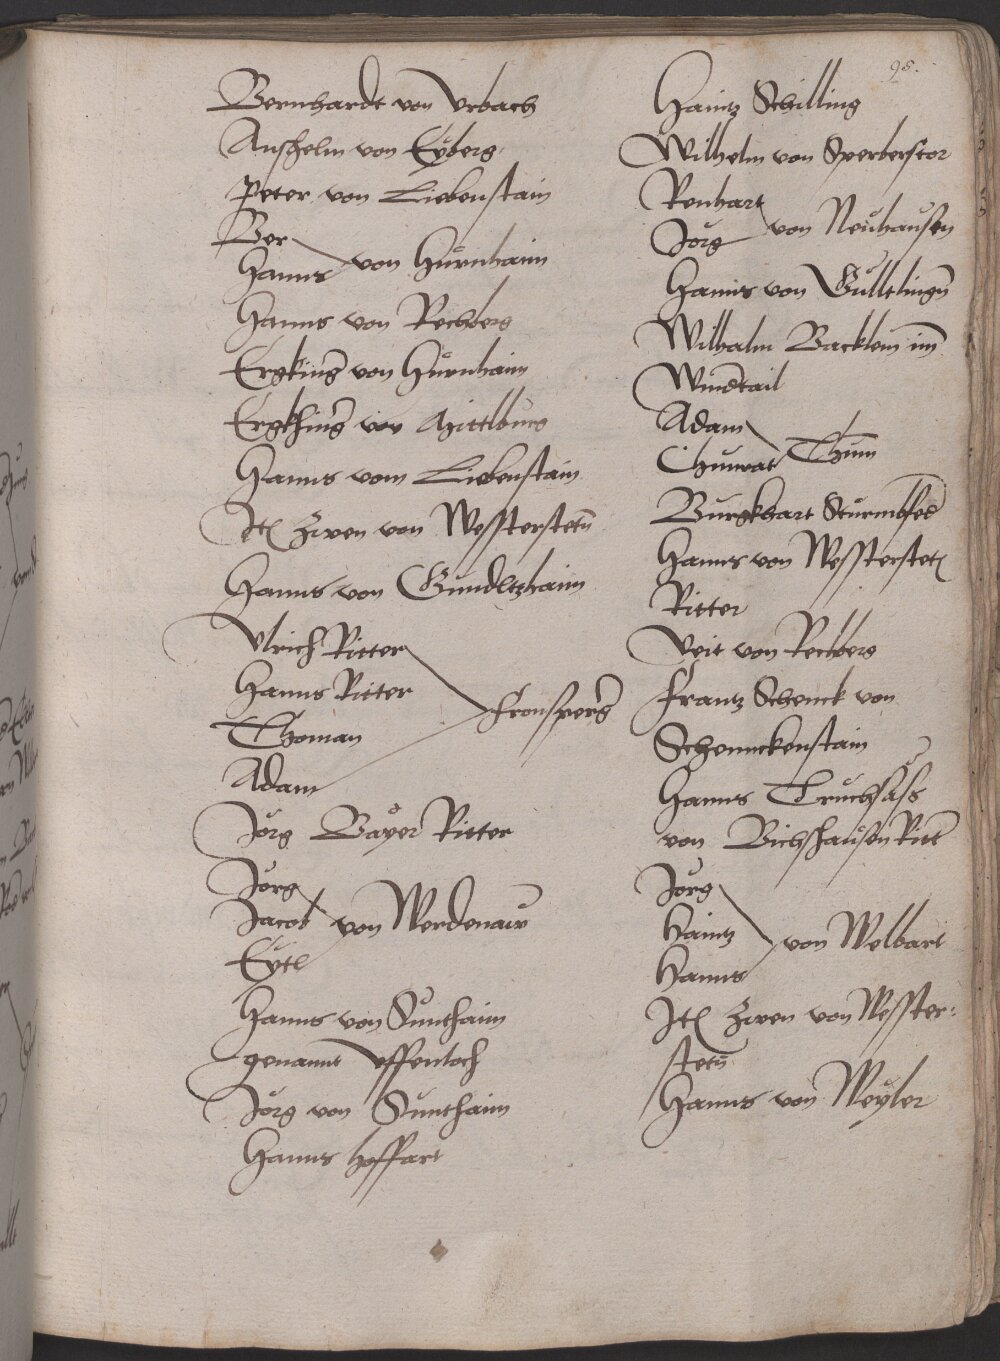 95.
Bernhardt von Urbach
Anßhelm von Eyberg
Peter von Liebenstain
Ber
Hanns von Hürnhaim
Hanns von Rechberg
Ergking von Hürnhaim
Ergkhing von Mittlburg
Hanns vom Liebenstain
Itē Zwen von Wessterstetñ
Hanns von Gundltzhaim
Ulrich Ritter
Hanns Ritter
Fronsperg
Thoman
Adam
Jörg Bayer Ritter
Jörg
Jacob von Werdenaw
Eytl
Hanns von Sunthaim
genannt Uffenloch
Jörg von Sunthaim
Hanns hoffart
Haintz Schilling
Wilhelm von Sperberscor
Renhart
Jörg von Neuhausen
Hanns von Gülltlingñ
Wilhalm Backlem im
Windtail
Adam
Chunrat Thum
Burgkhart Sturmfed
Hanns von Wesssterstetē
Ritter
Veit von Rechberg
Frantz Schenck von
Schennckenstain
Hanns Truchsäß
von Bichßhausen Ritt
Jörg
Haintz von Welbart
Hanns
Itē Zwen von Wesster:
stetñ
Hanns von Weyler